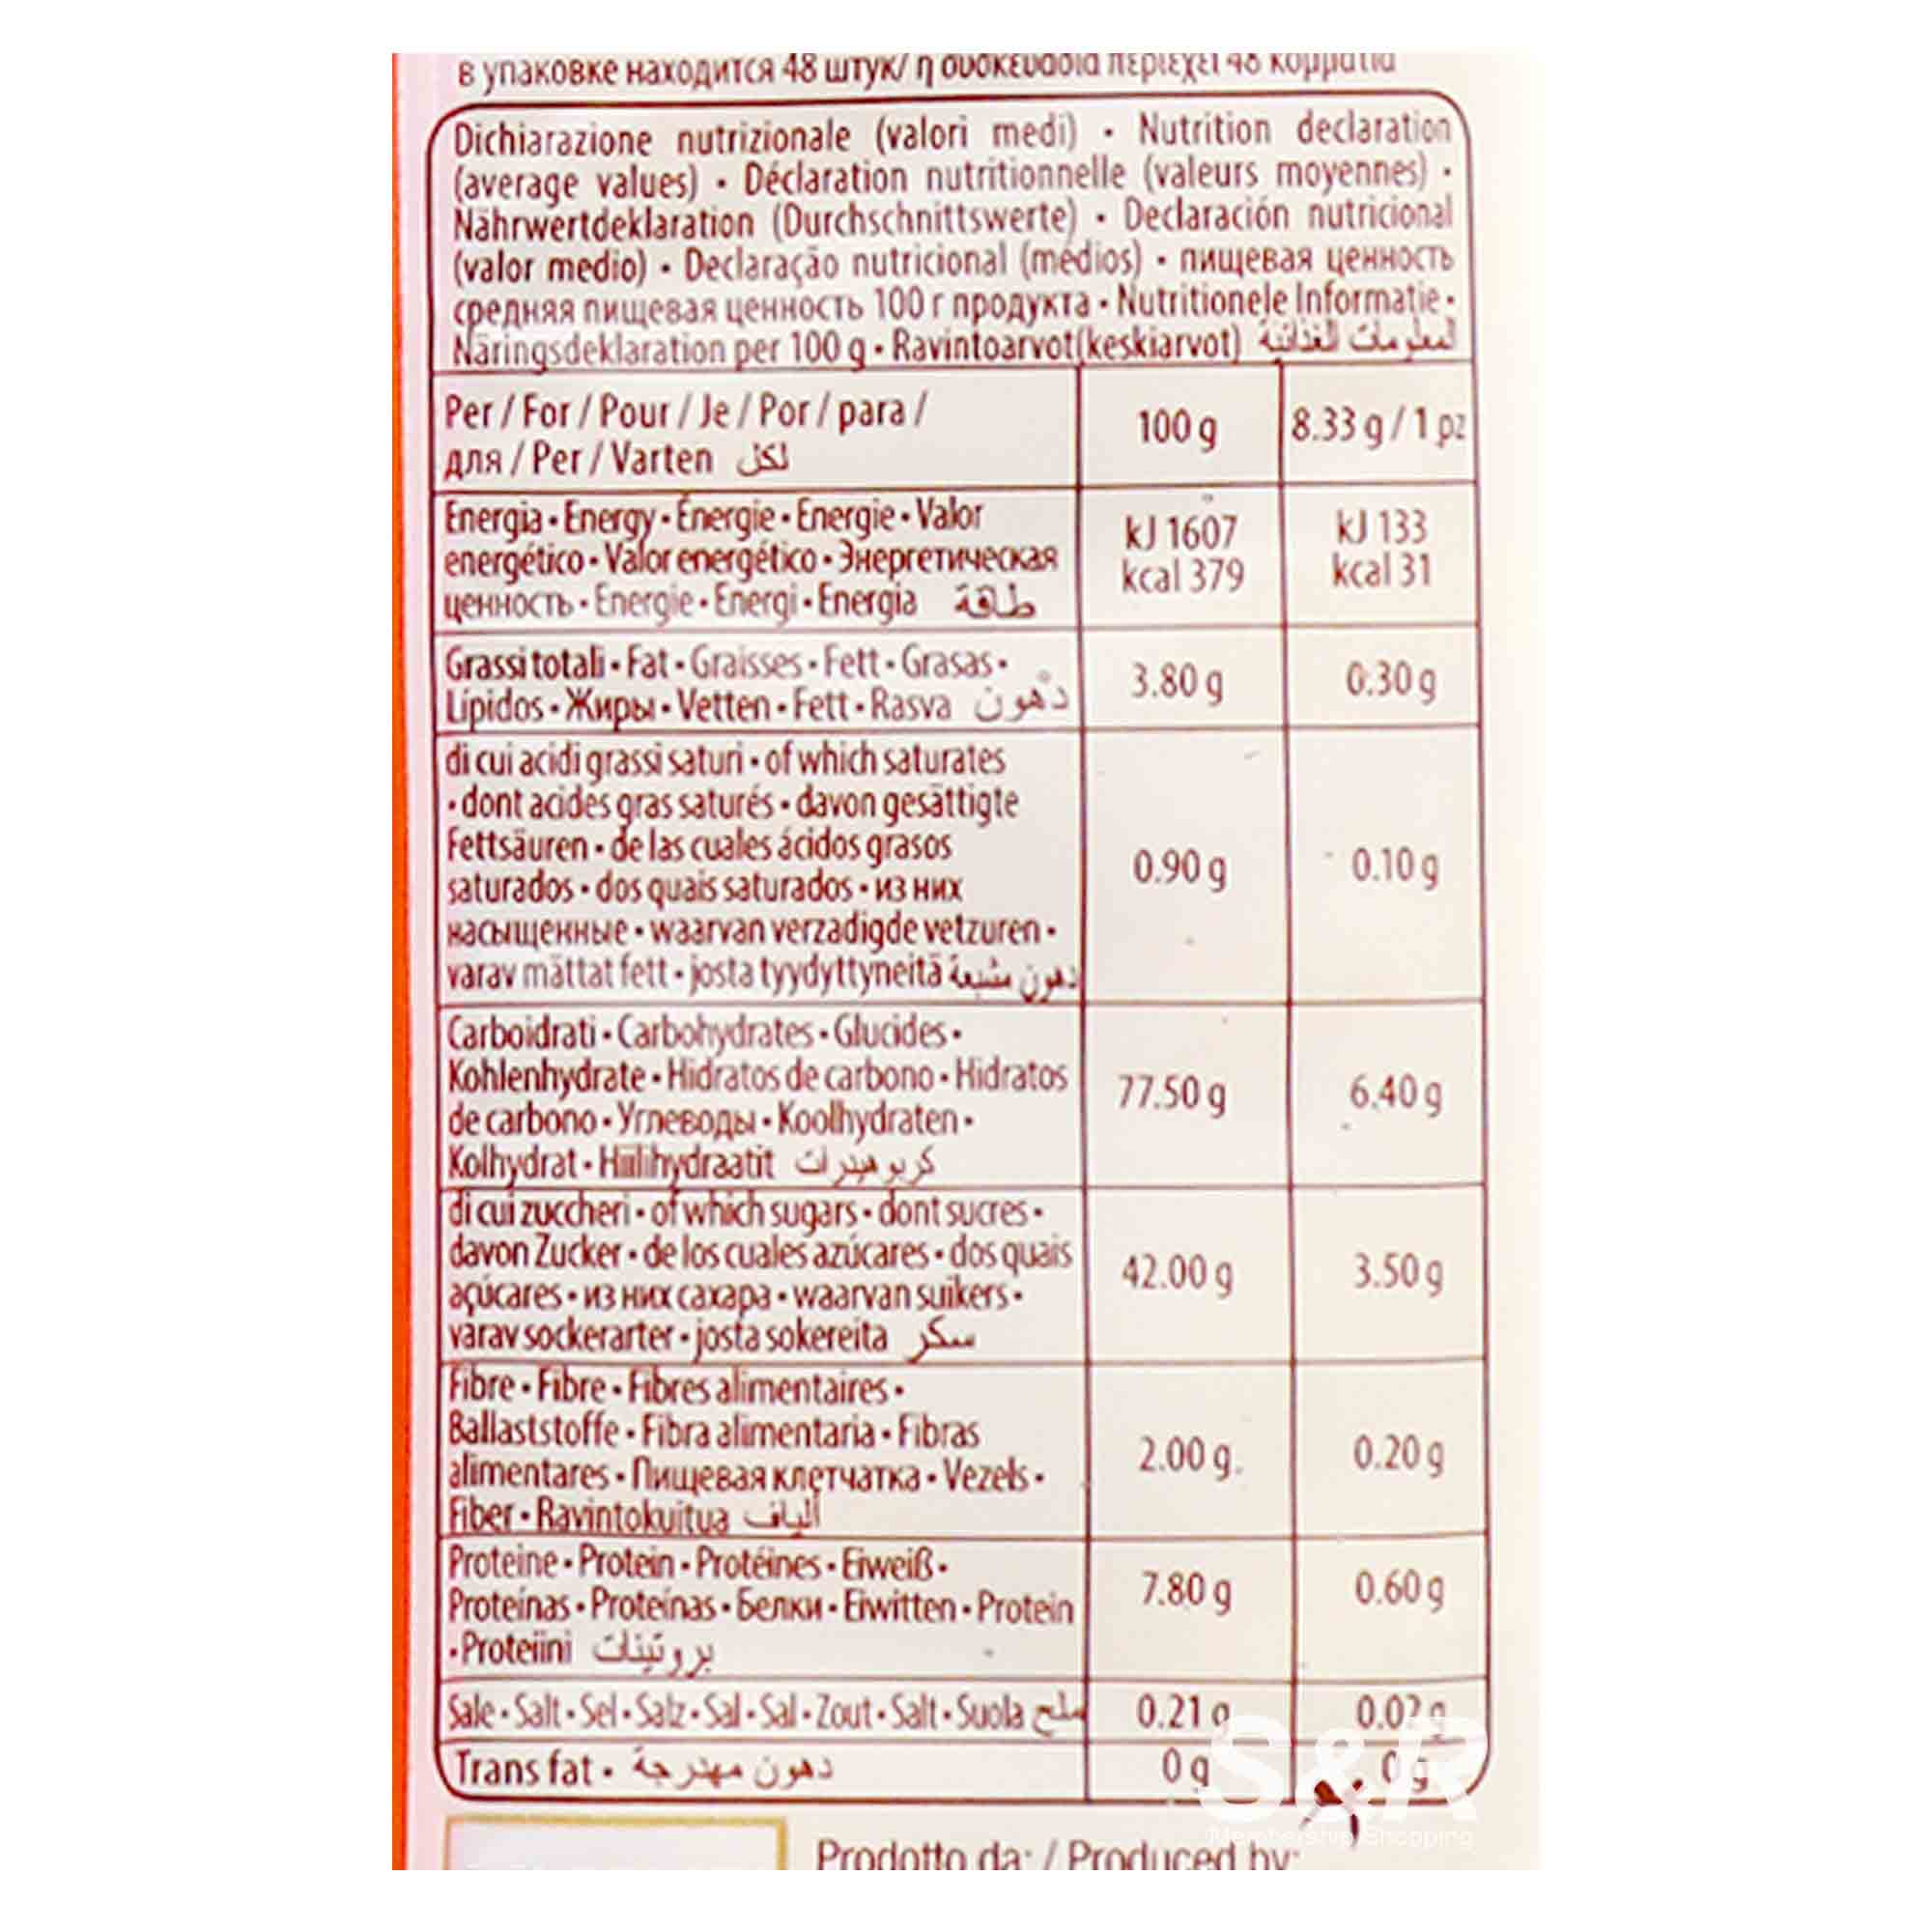 в упаковке находится 48 штук/ η συσκευασία περιέχει 48 κομμάτια
Dichiarazione nutrizionale (valori medi) • Nutrition declaration
(average values) • Déclaration nutritionnelle (valeurs moyennes) •
Nährwertdeklaration (Durchschnittswerte) • Declaración nutricional
(valor medio) • Declaração nutricional (médios) • пищевая ценность
средняя пищевая ценность 100 г продукта • Nutritionele Informatie •
Näringsdeklaration per 100 g • Ravintoarvot(keskiarvot) المعلومات الغذائية
Per / For / Pour / Je / Por / para /
для / Per / Varten لكل
100 g
8.33 g / 1 pz
Energia • Energy • Énergie • Energie • Valor
energético • Valor energético • Энергетическая
ценность • Energie • Energi • Energia طاقة
kJ 1607
kcal 379
kJ 133
kcal 31
Grassi totali • Fat • Graisses • Fett • Grasas •
Lípidos • Жиры • Vetten • Fett • Rasva دهون
3.80 g
0.30 g
di cui acidi grassi saturi • of which saturates
• dont acides gras saturés • davon gesättigte
Fettsäuren • de las cuales ácidos grasos
saturados • dos quais saturados • из них
насыщенные • waarvan verzadigde vetzuren •
varav mättat fett • josta tyydyttyneitä دهون مشبعة
0.90 g
0.10 g
Carboidrati • Carbohydrates • Glucides •
Kohlenhydrate • Hidratos de carbono • Hidratos
de carbono • Углеводы • Koolhydraten •
Kolhydrat • Hiilihydraatit كربوهيدرات
77.50 g
6.40 g
di cui zuccheri • of which sugars • dont sucres •
davon Zucker • de los cuales azúcares • dos quais
açúcares • из них сахара • waarvan suikers •
varav sockerarter • josta sokereita سكر
42.00 g
3.50 g
Fibre • Fibre • Fibres alimentaires •
Ballaststoffe • Fibra alimentaria • Fibras
alimentares • Пищевая клетчатка • Vezels •
Fiber • Ravintokuitua ألياف
2.00 g
0.20 g
Proteine • Protein • Protéines • Eiweiß •
Proteínas • Proteínas • Белки • Eiwitten • Protein
• Proteiini بروتينات
7.80 g
0.60 g
Sale • Salt • Sel • Salz • Sal • Sal • Zout • Salt • Suola ملح
0.21 g
0.02 g
Trans fat • دهون مهدرجة
0 g
0 g
S&R
Membership Shopping
Prodotto da: / Produced by: